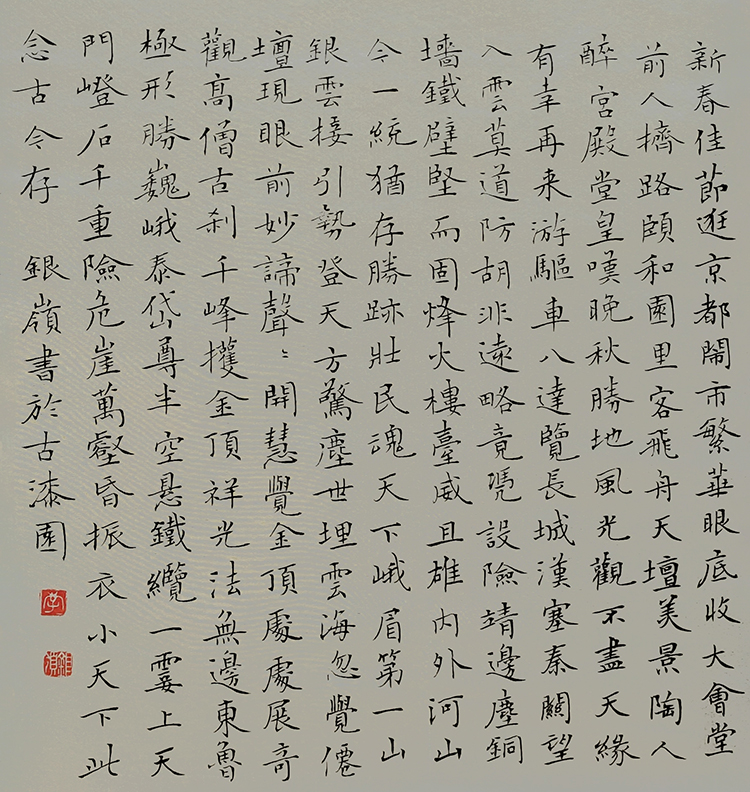 新春佳節逛京都鬧市繁華眼底收大會堂
前人擠路頤和園里客飛舟天壇美景陶人
醉宮殿堂皇嘆晚秋勝地風光觀不盡天緣
有幸再来游驅車八達覽長城漢塞秦關望
入雲莫道防胡非遠略竟凭設險靖邊塵銅
墻鐵壁堅而固烽火樓臺威且雄内外河山
今一統猶存勝跡壯民魂天下峨眉第一山
銀雲接引勢登天方驚塵世埋雲海忽覺僊
壇現眼前妙諦聲〻開慧覺金頂處處展奇
觀高僧古刹千峰擭金頂祥光法無邊東魯
極形勝巍峨泰岱尊半空悬鐵纜一霎上天
門嶝石千重險危崖萬壑昏振衣小天下此
念古今存 銀嶺書於古漆園
李
銀嶺